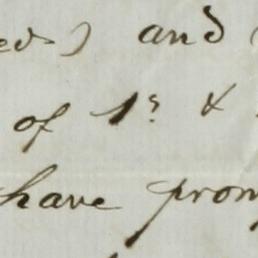 ed) and
of 1s &
have prom